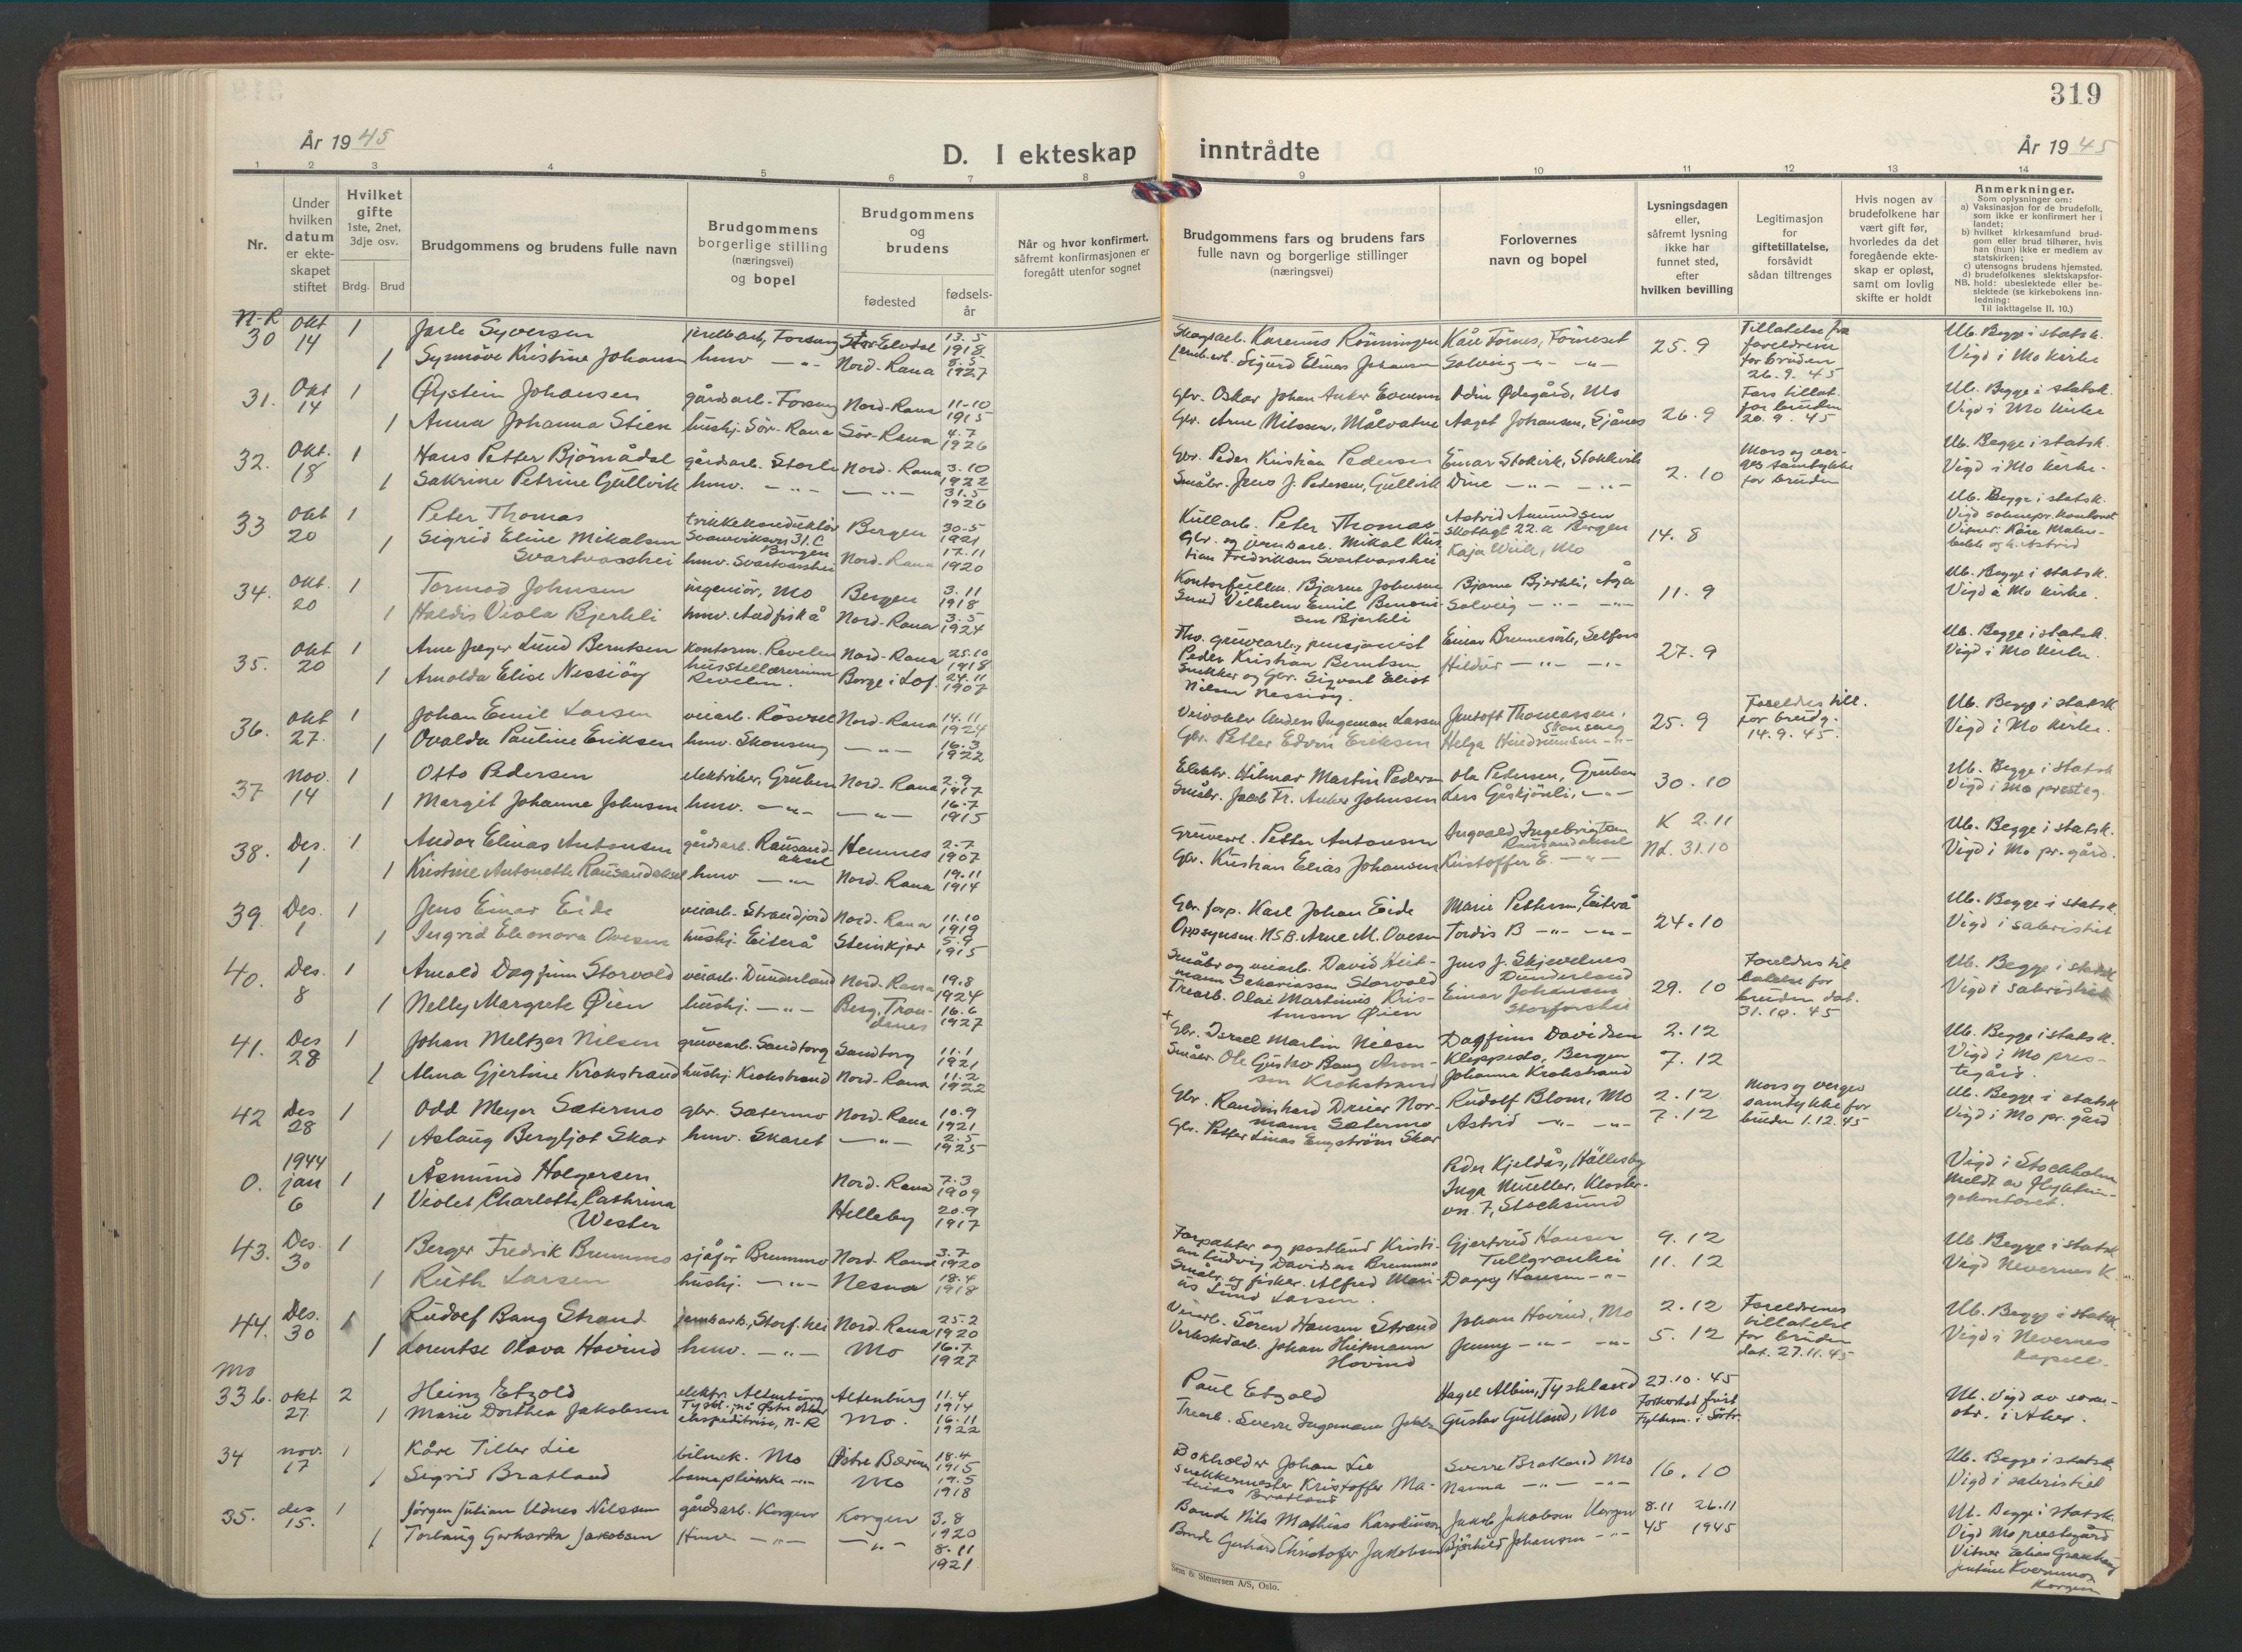 319
År 1945
D. I ekteskap inntrådte
År 1945
1 2 3 4 5 6 7 8 9 10 11 12 13 14
Nr.
Under hvilken datum er ekte-skapet stiftet
Hvilket gifte 1ste, 2net, 3dje osv.
Brdg. Brud
Brudgommens og brudens fulle navn
Brudgommens borgerlige stilling (næringsvei) og bopel
Brudgommens og brudens
fødested
fødsels-år
Når og hvor konfirmert, såfremt konfirmasjonen er foregått utenfor sognet
Brudgommens fars og brudens fars fulle navn og borgerlige stillinger (næringsvei)
Forlovernes navn og bopel
Lysningsdagen eller, såfremt lysning ikke har funnet sted, efter hvilken bevilling
Legitimasjon for giftetillatelse, forsåvidt sådan tiltrenges
Hvis nogen av brudefolkene har vært gift før, hvorledes da det foregående ekte-skap er opløst, samt om lovlig skifte er holdt
Anmerkninger.
Som oplysninger om:
a) Vaksinasjon for de brudefolk, som ikke er konfirmert her i landet;
b) hvilket kirkesamfund brud-gom eller brud tilhører, hvis han (hun) ikke er medlem av statskirken;
c) utensogns brudens hjemsted.
d) brudefolkenes slektskapsfor-hold: ubeslektede eller be-slektede (se kirkebokens inn-ledning:
Til iakttagelse II. 10.)
N-R
30 Okt 14 1 Jarle Syversen Stor Elvdal 13.5 1918
1 Synnöve Kristine Johansen hmv — " — Nord-Rana 8.5 1927
Kåre Fornes, Förneset 25.9 Tillatelse fra foreldrene for bruden 26.9.45
Solveig — " — Ub. Begge i statsk. Vigd i Mo kirke
31. Okt 14 1 Øystein Johansen gårdsarb. Nord-Rana 11-10 1915
1 Anna Johanna Stien hushj. Sör-Rana Sör-Rana 4.7 1926
Gbr. Oskar Johan Anker Odin Ødegård, Mo 26.9 Fars tillat. for bruden 20.9.45
Gbr. Arne Nilssen, Målvatn Aagot Johansen Ub. Begge i statsk. Vigd i Mo kirke
32. Okt. 18 1 Hans Petter Björnådal gårdsarb. Nord-Rana 3.10 1922
1 Sakrine Petrine Gullvik hmv. — " — 31.5 1926
Gbr. Peder Kristian Pedersen 2.10 Mors og samtykke for bruden
Småbr. Jens J. Pedersen, Gullvik Ub. Begge i statsk. Vigd i Mo kirke.
33 Okt 20 1 Peter Thomas trikkekonduktör Bergen 30-5 1921
1 Sigrid Eline Mikalsen Svartvasshei hmv. Svartvasshei Nord-Rana 17.11 1920
Kullarb. Peter Thomas Astrid Amundsen Bergen 14.8
Kaja Wiik, Mo Ub. Begge i statsk.
34. Okt. 20 1 Tormod Johnsen ingeniør, Mo Bergen 3.11 1918
1 Haldis Viola Bjerkli hmv. Andfiskå Nord-Rana 3.5 1924
Bjarne Johnsen Bjarne Bjerkli 11.9
Vilhelm Emil Bjerkli Solveig — " — Ub. Begge i statsk. Vigd i Mo kirke.
35. Okt 20 1 Arne Jæger Lund Berntsen kontorm. Revelen Nord-Rana 25.10 1918
1 Arnolda Elise Nessiöy Revelen. Borge i Lof. 24.11 1907
Peder Kristian Berntsen Selfors 27.9
Snekker og Gbr. Sigvart Eliot Nilsen Nessiöy. Hildur — " — Ub. Begge i statsk. Vigd i Mo kirke.
36. Okt 27. 1 Johan Emil Larsen veiarb. Nord-Rana 14.11 1924
1 Ovalda Pauline Eriksen hmv. Skonseng — " — 16.3 1922
Anders Ingeman Larsen Jentoft Thomassen, Skonseng 25.9 for brudg. 14.9.45.
Gbr. Petter Edvin Eriksen Ub. Begge i statsk Vigd i Mo kirke.
37 Nov. 14 1 Otto Pedersen elektriker, Gruben Nord-Rana 2.9 1917
1 Margit Johanne Johnsen hmv. — " — 16.7 1915
Elektr. Hilmar Martin Pedersen Ola Petersen, Gruben 30.10
Småbr. Jacob Fr. Anker Johnsen Ub. Begge i statsk Vigd i Mo presteg.
38. Des. 1 1 Andor Elias Antonsen gårdsarb. Hemnes 2.7 1907
1 Kristine Antonette hmv — " — Nord-Rana 19.11 1914
Gruvearb. Petter Antonsen Ingvald Ingebrigtsen K 2.11
Gbr. Kristian Elias Johansen Kristoffer E. — " — Nd. 31.10 Ub. Begge i statsk. Vigd i Mo pr. gård.
39. Des. 1 1 Jens Einar Eide veiarb. Strandjord Nord-Rana 11.10 1919
1 Ingrid Eleonora Ovesen hushj. Eiterå Steinkjer 5.9 1915
Gbr. forp. Karl Johan Eide Marie Pettersen, Eiterå 24.10
Oppsynsm. NSB. Arne M. Ovesen Tordis B — " — Ub. Begge i statsk. Vigd i sakristiet
40. Des. 8 1 Arnold Dagfinn Storvold veiarb. Dunderland Nord-Rana 19.8 1924
1 Nelly Margrete Øien hushj. — " — 16.6 1927
Småbr og veiarb. David Heitmann Sakariassen Storvold Jens J. Skjevelnes Dunderland 29.10
Trearb. Olai Martinus Kristensen Øien Einar Johansen Storforshei bruden dat. 31.10.45 Ub. Begge i statsk Vigd i sakristiet
41. Des 28 1 Johan Meltzer Nilsen gruvearb. Sandtorg Sandtorg 11.1 1921
1 Alma Gjertine Krokstrand hushj Krokstrand Nord-Rana 11.2 1922
Gbr. Israel Martin Nilsen Dagfinn Davidsen 2.12
Småbr. Ole Gustav Bang Krokstrand Johanna Krokstrand 7.12 Ub. Begge i statsk. Vigd i Mo prestegård.
42 Des 28 1 Odd Meyer Sætermo gbr. Sætermo Nord-Rana 10.9 1921
1 Aslaug Bergljot Skar hmv. Skaret — " — 2.5 1925
Gbr. Normann Sætermo Rudolf Blom, Mo 2.12 Mors og verges samtykke for bruden 1.12.45
Gbr. Petter Linas Engström Skar Astrid — " — 7.12 Ub. Begge i statsk Vigd i Mo pr. gård
0. 1944 jan 6 1 Åsmund Holgersen Nord-Rana 7.3 1909
1 Violet Charlotte Cathrina Wester Helleby 20.9 1917
Peder Kjeldås, Hällesby
Inga Mueller, Klosterv. 7, Stocksund Vigd i Stockholm
43. Des. 30 1 Berger Fredrik Brummo sjåfør Brummo Nord-Rana 3.7 1920
1 Ruth Larsen hushj. — " — Nesna 18.4 1918
Forpakter og Kristian Ludvig Davidsen Brummo Gjertrud Hansen 9.12
Småbr. og fisker. Alfred Marius Lund Larsen. Dagny Hansen — " — 11.12 Ub. Begge i statsk Vigd Nevernes K.
44. Des. 30 1 Rudolf Bang Strand Nord-Rana 25.2 1920
1 Lorentse Olava Hovind hmv. — " — Mo 16.7 1927
Sören Hansen Strand Johan Hovind, Mo 2.12 Foreldrenes tillatelse for bruden dat. 27.11.45
Verkstedarb. Johan Hovind Jenny — " — 5.12 Ub. Begge i statsk Vigd i Nevernes kapell.
Mo
33b. okt 27. 2 Heinz Etzold elektr. Altenburg Altenburg 11.4 1914
1 Marie Dorthea Jakobsen ekspeditrise, N-R Mo. 16.11 1922
Paul Etzold Hagel Albin, Tyskland 27.10.45
Trearb. Sverre Ingemann Gustav Gulland, Mo Forkortet frist Ub. Vigd av i Aker.
34 nov. 17 1 Kåre Tiller Lie bilmek. Mo 18.4 1915
1 Sigrid Bratland Mo 19.5 1918
Bokholder Johan Lie Sverre Bratland Mo 16.10
Snekkermester Kristoffer Mathias Bratland Nanna — " — Ub. Begge i statsk Vigd i sakristiet
35. des 15. 1 Jørgen Julian Udnes Nilssen gårdsarb. Korgen Korgen 3.8 1920
1 Torbaug Gerharda Jakobsen Hmv. — " — 8.11 1921
Bonde Nils Mathias Jakob Jakobsen 8.11 45 26.11 1945
Bonde Gerhard Christofer Jakobsen Bjørhild Johansen — " — Ub. Begge i statsk. Vigd Mo prestegård Korgen
Sem & Stenersen A/S, Oslo.